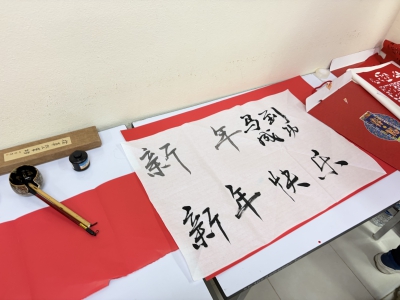 新年马到
成功
新年快乐